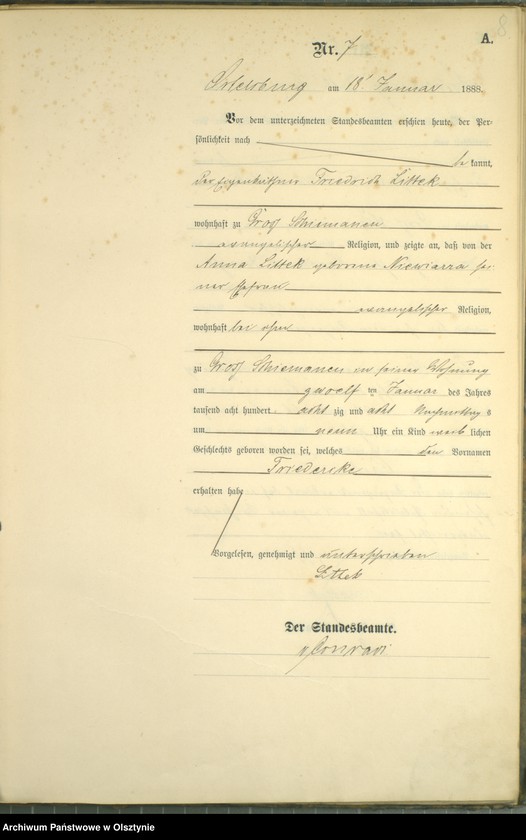 8
A.
Nr. 7
Ortelsburg am 18' Januar 1888.
Vor dem unterzeichneten Standesbeamten erschien heute, der Per-
sönlichkeit nach
be kannt,
der Eigenkäthner Friedrich Littek
wohnhaft zu Groß Schiemanen
evangelischer Religion, und zeigte an, daß von der
Anna Littek geborene Niewiarra sei-
ner Ehefrau
evangelischer Religion,
wohnhaft bei ihm
zu Groß Schiemanen in seiner Wohnung
am zwoelf ten Januar des Jahres
tausend acht hundert acht zig und acht Nachmittag s
um neun Uhr ein Kind weib lichen
Geschlechts geboren worden sei, welches den Vornamen
Friedericke
erhalten habe
Vorgelesen, genehmigt und unterschrieben
Littek
Der Standesbeamte.
v. Conradi
Archiwum Państwowe w Olsztynie